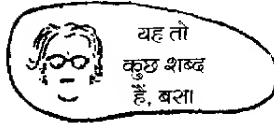 यह तो
कुछ शब्द
हैं, बस।